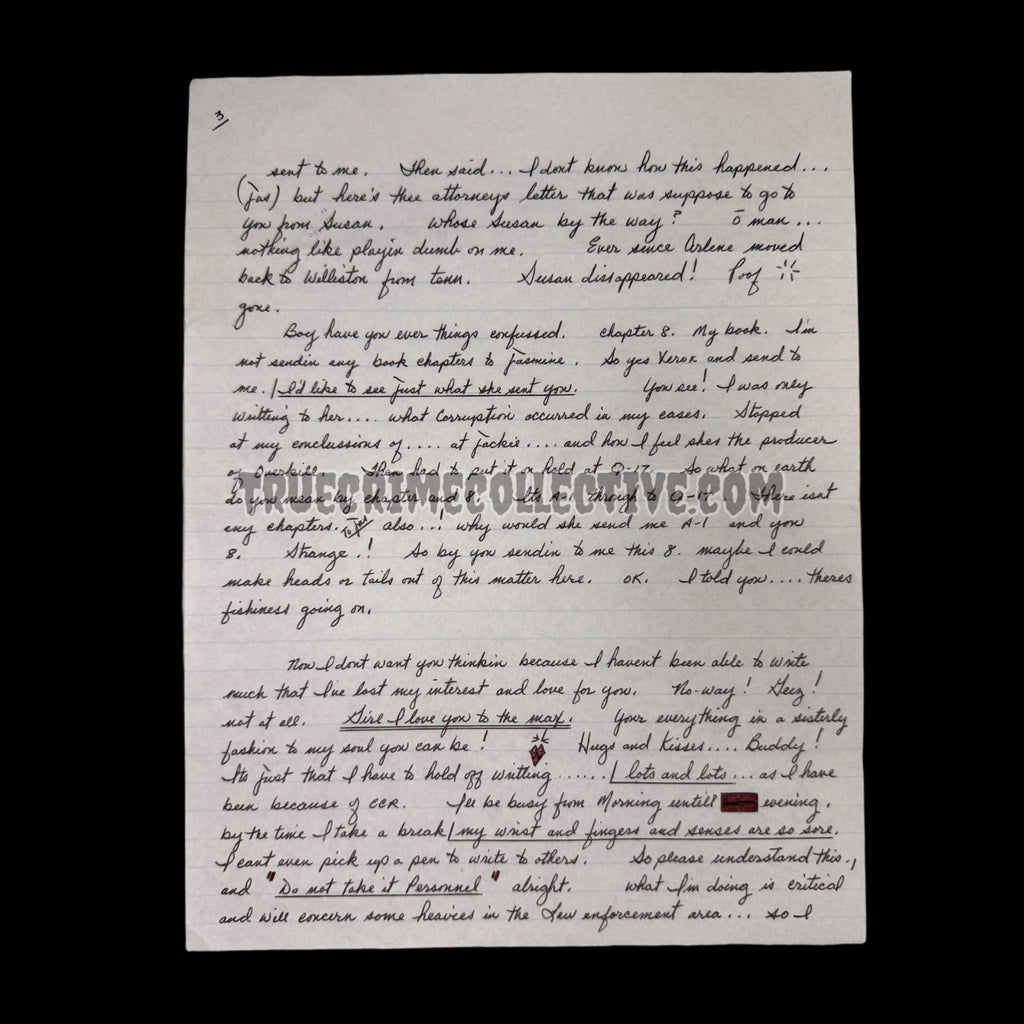 3
sent to me. Then said... I dont know how this happened...
(Jas) but here's thee attorneys letter that was suppose to go to
you from Susan. Whose Susan by the way? O man...
nothing like playin dumb on me. Ever since Arlene moved
back to Williston from tenn. Susan dissappeared! Poof
gone.
Boy have you ever things confussed. Chapter 8. My book. I'm
not sendin any book chapters to Jasmine. So yes Xerox and send to
me. I'd like to see just what she sent you. You see! I was only
writting to her.... what Corruption occurred in my cases. Stopped
at my conclussions of.... at Jackie.... and how I feel shes the producer
of Overkill. Then had to put it on hold at Q-17. So what on earth
do you mean by chapter and 8. Its A-1 through to Q-17. There isnt
any chapters. To Jas also..! Why would she send me A-1 and you
8. Strange.! So by you sendin to me this 8. maybe I could
make heads or tails out of this matter here. OK. I told you.... theres
fishiness going on.
Now I dont want you thinkin because I havent been able to write
much that I've lost my interest and love for you. No-way! Geez!
not at all. Girl I love you to the max. Your everything in a sisterly
fashion to my soul you can be! Hugs and Kisses.... Buddy!
Its just that I have to hold off writting...... lots and lots... as I have
been because of CCR. I'll be busy from Morning untill evening.
by the time I take a break my wrist and fingers and senses are so sore.
I cant even pick up a pen to write to others. So please understand this.,
and "Do not take it Personnel" alright. What I'm doing is critical
and will concern some heavies in the Law enforcement area... so I
TRUECRIMECOLLECTIVE.COM